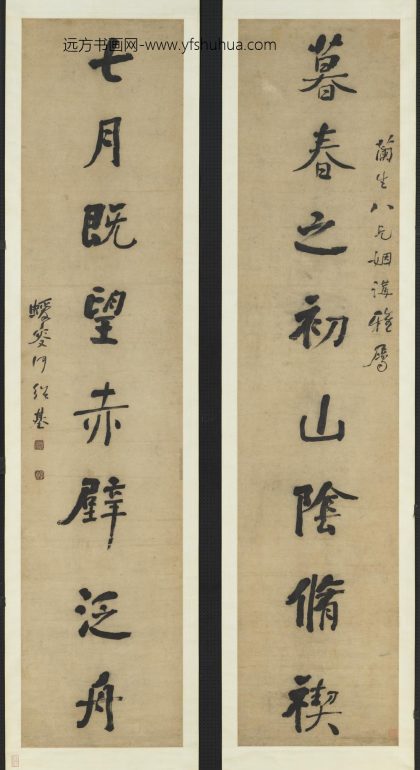 远方书画网-www.yfshuhua.com
蘭生八兄姻講雅屬
暮春之初山陰脩禊
七月既望赤壁泛舟
蝯叟何紹基